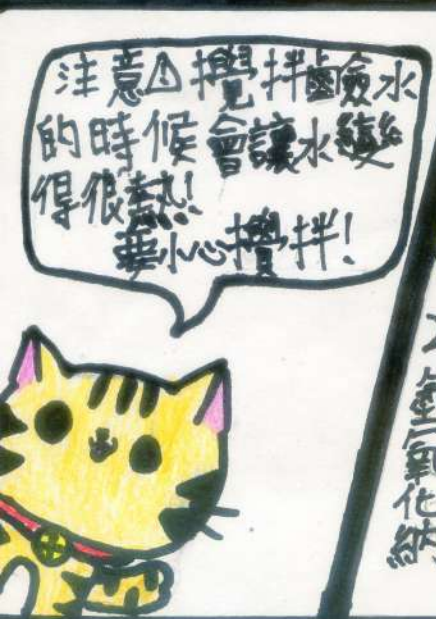 注意⚠攪拌鹼水
的時候會讓水變
得很熱!
要小心攪拌!
氫氧化納